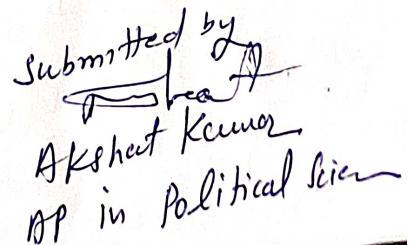 Submitted by
Akshat Kumar
AP in Political Scien